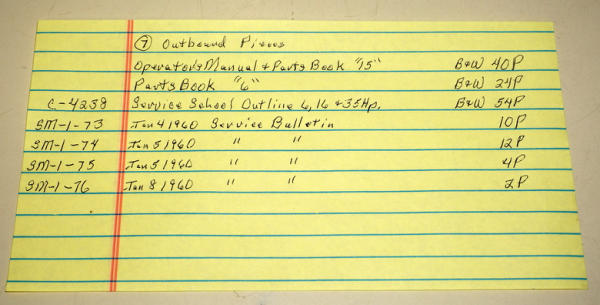 ⑦ Outbound Pieces
Operator's Manual & Parts Book "15" B&W 40P
Parts Book "6" B&W 24P
C-4258 Service School Outline 6, 16 & 35Hp. B&W 54P
SM-1-73 Jan 4 1960 Service Bulletin 10P
SM-1-74 Jan 5 1960 " " 12P
SM-1-75 Jan 5 1960 " " 4P
SM-1-76 Jan 8 1960 " " 2P